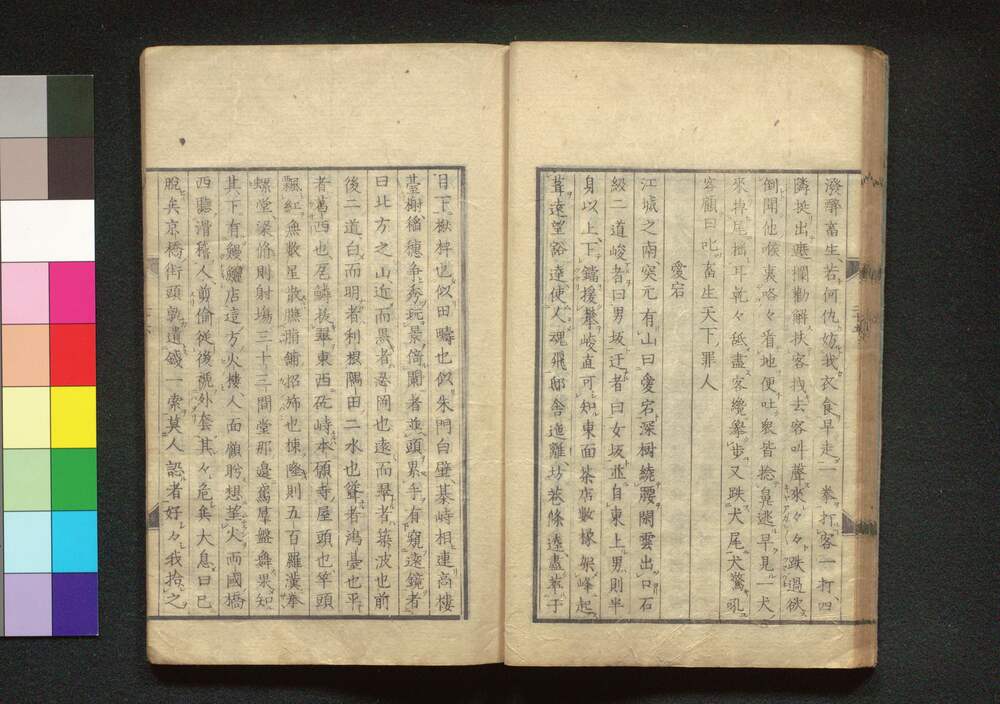 濟聲畜生若何仇妨我衣食早走一拳打客一打四
隣挺出遮攔勸解扶客拽去客叫聲來々々跌過欲
倒開他喉裏咯々着地便吐衆皆捻鼻逃早見一犬
來掉尾搖耳乾々舐盡客纔擧步又跌犬尾犬驚吼
客顧曰叱畜生天下罪人
愛宕
江城之南突兀有山曰愛宕深樹繞腰閑雲出口石
級二道峻者曰男坂迂者曰女坂並自東上男則半
身以上下鐺援攀峻直可知東面茶店數椽架峰起
葺遠望豁達使人魂飛邸舍迤邐坊巷條達盡萃于
目下楸枰也似田疇也似朱門白壁棊峙相連高樓
臺榭穡穗争秀玩景倚闌者並頭累手有窺遠鏡者
曰北方之山近而黑者忍岡也遠而翠者築波也前
後二道白而明者利根隅田二水也聳者鴻臺也平
者葛西也尾鱗拔翠東西屹峙本願寺屋頭也竿頭
飜紅無數星散臙脂鋪招㠶也棟隆則五百羅漢拳
螺堂梁脩則射塲三十三間堂那邊篤羣盤舞果知
其下有鰻鱺店這方火樓人面顧盼想望火兩國橋
西聽滑稽人剪偷從後褫外套其々危矣大息曰已
脫矣京橋街頭孰遺錢一索莫人認者好々我拾之